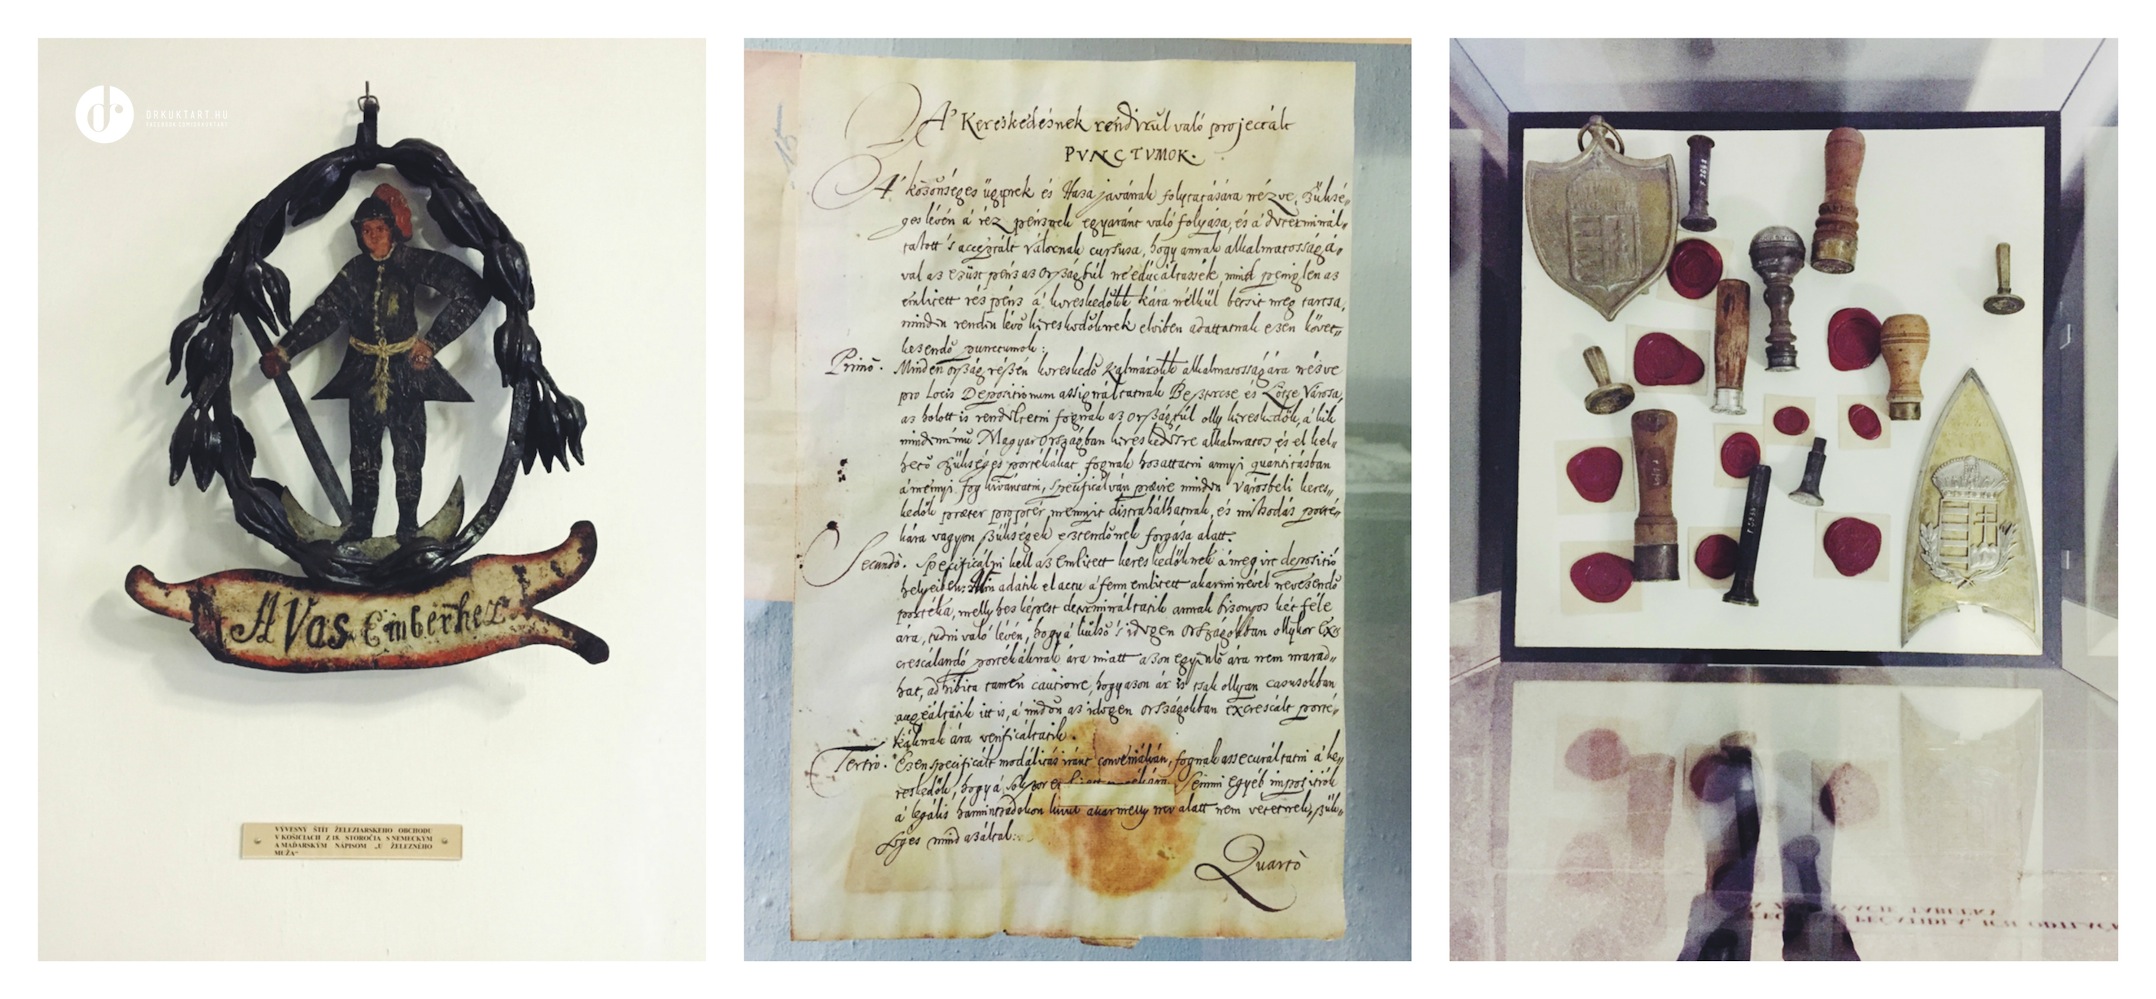 dr
DRKUKTART.HU
FACEBOOK.COM/DRKUKTART
A Vas Emberhez
VÝVESNÝ ŠTÍT ŽELEZIARSKEHO OBCHODU
V KOŠICIACH Z 18. STOROČIA S NEMECKÝM
A MAĎARSKÝM NÁPISOM „U ŽELEZNÉHO
MUŽA“
15
A' Kereskedésnek rendirül való projectált
PVNCTVMOK.
A' közönséges ügynek és Haza javának folytatására nézve, Szüksé„
ges lévén á réz pénznek egyaránt való folyása, és á determinál„
tatott 's acceptált valornak cursusa, hogy annak alkalmatosságá„
val az ezüst pénz az Országbúl ne educáltassék, mind penig len az
emlitett réz pénz á' kereskedőkk kára nélkül bersit meg tartsa,
minden renden lévő kereskedőknek eleiben adattatnak ezen követ„
kezendő punctumok:
Primò. Minden ország részén kereskedő Kalmárokk alkalmatosságára nézve
pro Locis Depositionum assignáltatnak Besztercze és Lőcse Városa,
az holott is rendeltetni fognak az Országtúl olly kereskedők, á kik
mindennémű Magyar Országban kereskedésre alkalmatos és el kel„
hető Szükséges portékákat fognak hozattatni annyi quantitásban
á mennyi fog kivántatni, specificalván praevie minden Városbeli keres„
kedők praeter propter, mennyit distrahálhatnak, és mi bodás porté„
kára vagyon Szükségek esztendőnek forgása alatt.
Secundò. Specificálni kell az emlitett kereskedőknek á meg irt depositió
helyeiben: Min adatik el actu á fenn emlitett akarmi névvel nevezendő
portéka, melly hez képest determináltatik annak bizonyos két féle
ára, tudni való lévén, hogy á külső 's idegen Országokban ollykor Exc
crescálandó portékáknak ára miatt azon egyenlő ára nem marad„
hat, adhibita tamen cautione, hogy azon ár is csak ollyan casusokban
augeáltatik itt is, á midőn az idegen országokban excrescált porté„
káknak ára verificáltatik.
Tertiò. Ezen specificált modalitás iránt conveniálván, fognak assecuráltatni á ke„
reskedők, hogy á
Semmi egyéb impositiók
á legális harminczadokon kivül akarmelly név alatt nem vétetnek, Szük„
séges mind azáltal:
Quartò